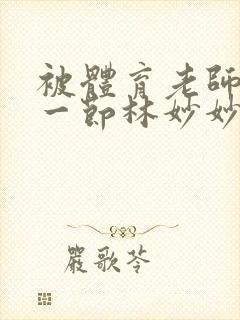 被體育老師
一節林妙妙
嚴歌苓